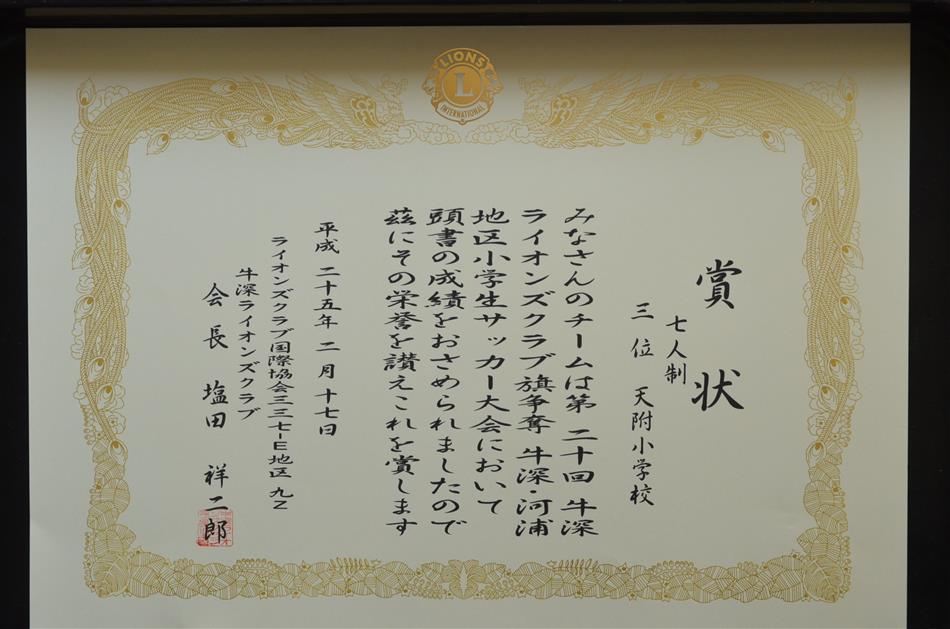 LIONS
L
INTERNATIONAL
賞状
七人制
三位 天附小学校
みなさんのチームは第二十回 牛深
ライオンズクラブ旗争奪 牛深・河浦
地区小学生サッカー大会において
頭書の成績をおさめられましたので
茲にその栄誉を讃えこれを賞します
平成二十五年二月十七日
ライオンズクラブ国際協会三三七-E地区 九Z
牛深ライオンズクラブ
会長 塩田 祥二郎